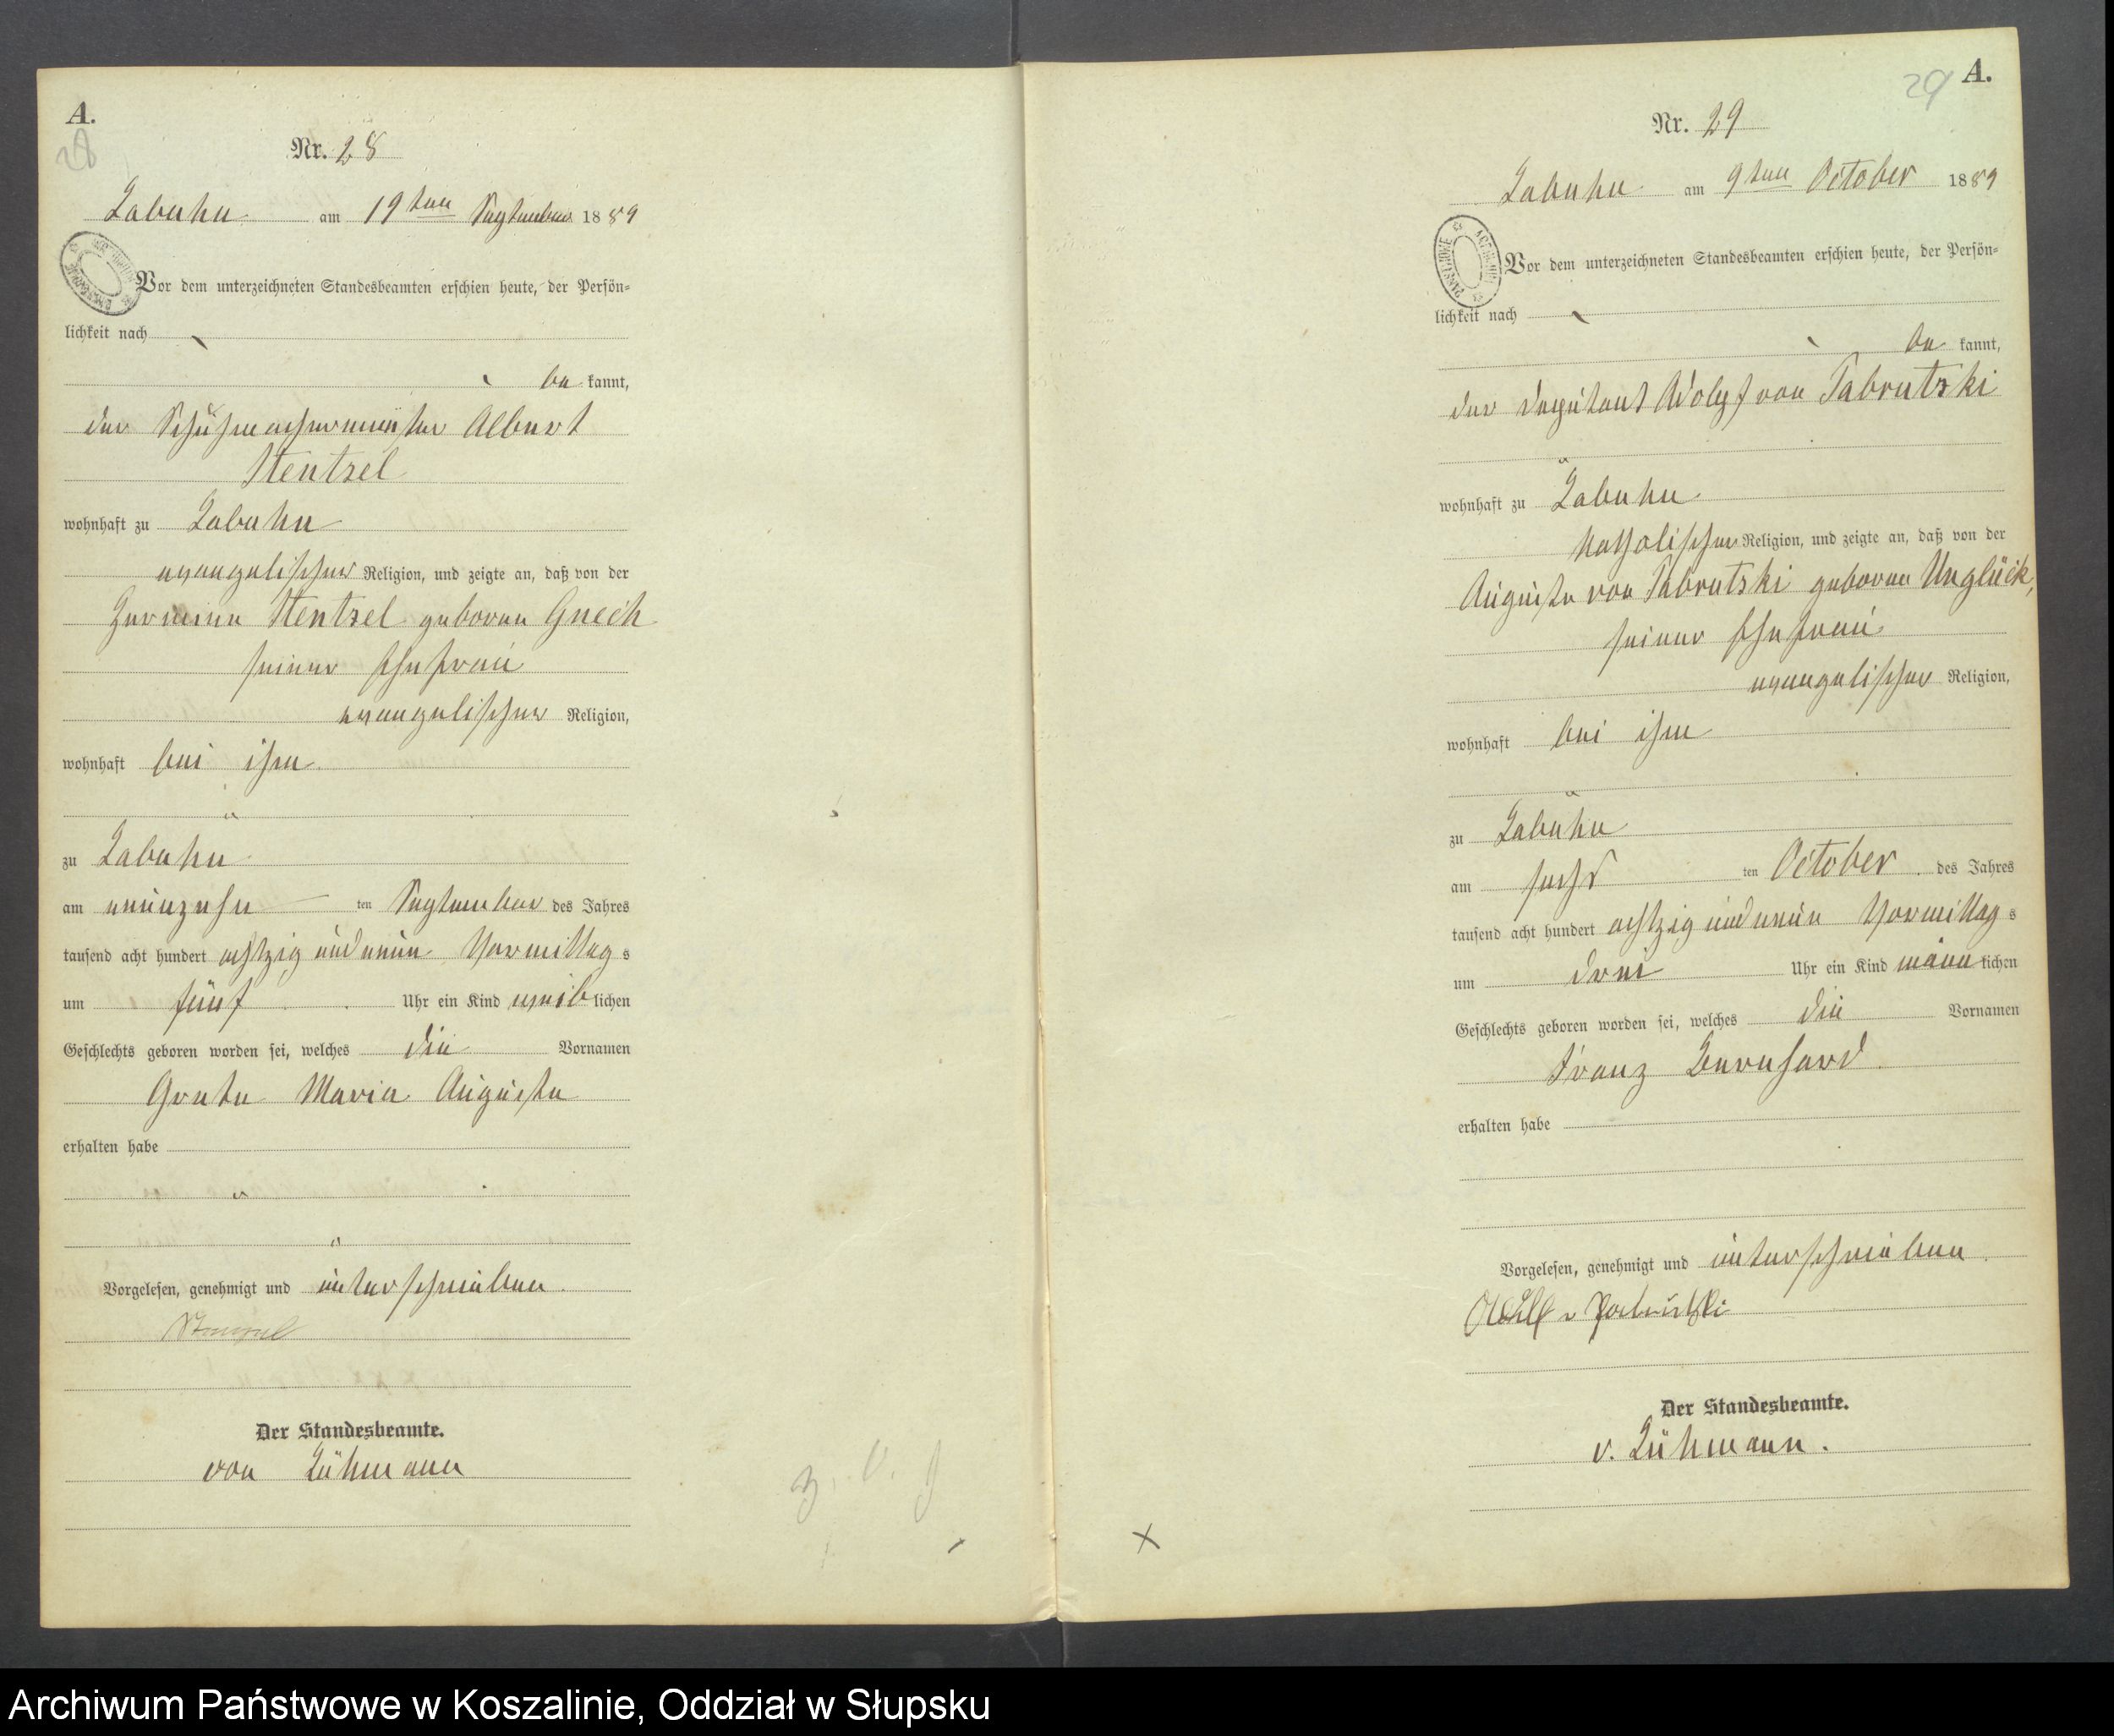 A.
28
Nr. 28
Labuhn am 19ten September 1889
Vor dem unterzeichneten Standesbeamten erschien heute, der Persön-
lichkeit nach
be kannt,
der Schuhmachermeister Albert
Stentzel
wohnhaft zu Labuhn
evangelischer Religion, und zeigte an, daß von der
Hermine Stentzel geboren Gnech
seiner Ehefrau
evangelischer Religion,
wohnhaft bei ihm
zu Labuhn
am neunzehn ten September des Jahres
tausend acht hundert achtzig und neun Vormittag s
um fünf Uhr ein Kind weib lichen
Geschlechts geboren worden sei, welches die Vornamen
Grete Maria Auguste
erhalten habe
Vorgelesen, genehmigt und unterschrieben.
Der Standesbeamte.
von Lühmann
z. v. g
A.
29
Nr. 29
Labuhn am 9ten October 1889
Vor dem unterzeichneten Standesbeamten erschien heute, der Persön-
lichkeit nach
be kannt,
der Deputant Adolf von Pabrutzki
wohnhaft zu Labuhn
katholischer Religion, und zeigte an, daß von der
Auguste von Pabrutzki geboren Unglück,
seiner Ehefrau
evangelischer Religion,
wohnhaft bei ihm
zu Labuhn
am sechs ten October des Jahres
tausend acht hundert achtzig und neun Vormittag s
um drei Uhr ein Kind männ lichen
Geschlechts geboren worden sei, welches die Vornamen
Franz Bernhard
erhalten habe
Vorgelesen, genehmigt und unterschrieben.
Adolf v Pabrutzki
Der Standesbeamte.
v. Lühmann.
Archiwum Państwowe w Koszalinie, Oddział w Słupsku